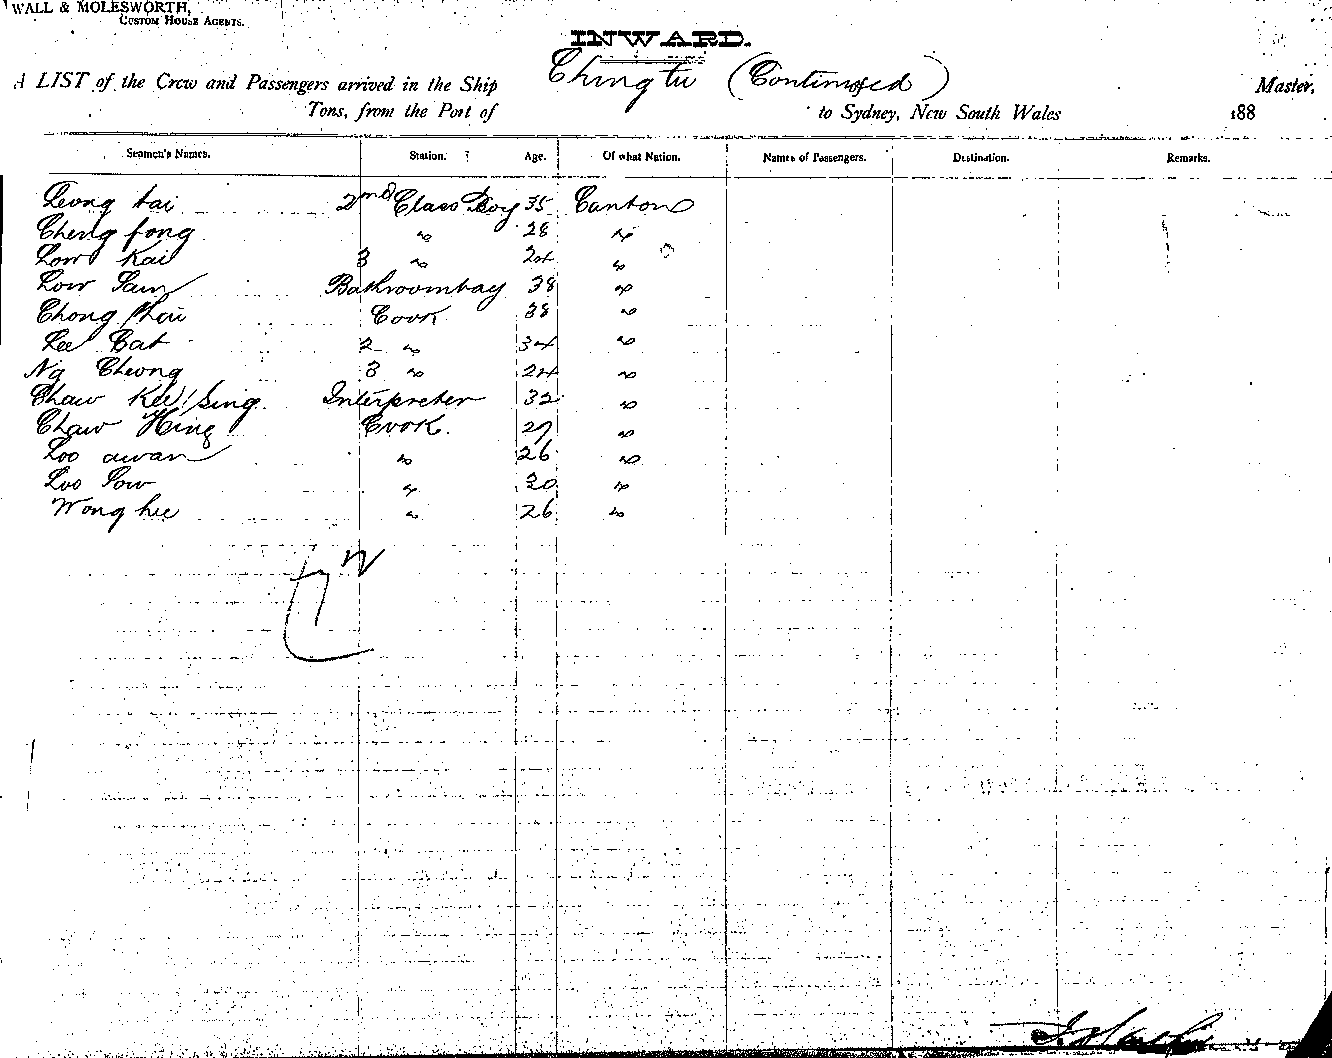 WALL & MOLESWORTH,
CUSTOM HOUSE AGENTS.
INWARD.
A LIST of the Crew and Passengers arrived in the Ship Chingtu (Continued) Master,
Tons, from the Port of to Sydney, New South Wales 188
Seamen's Names. Station. Age. Of what Nation. Names of Passengers. Destination. Remarks.
Leong tai 2nd Class Boy 35 Canton
Cheng fong " 28 "
Low Kai 3 " 24 "
Low Sam Bathroomboy 38 "
Chong Cook 38 "
Lee Cat 2 " 34 "
Ng Cheong 3 " 24 "
Chaw Kee Sing Interpreter 32 "
Chaw Hing Cook. 27 "
Loo awan " 26 "
Loo Sow " 30 "
Wong hee " 26 "